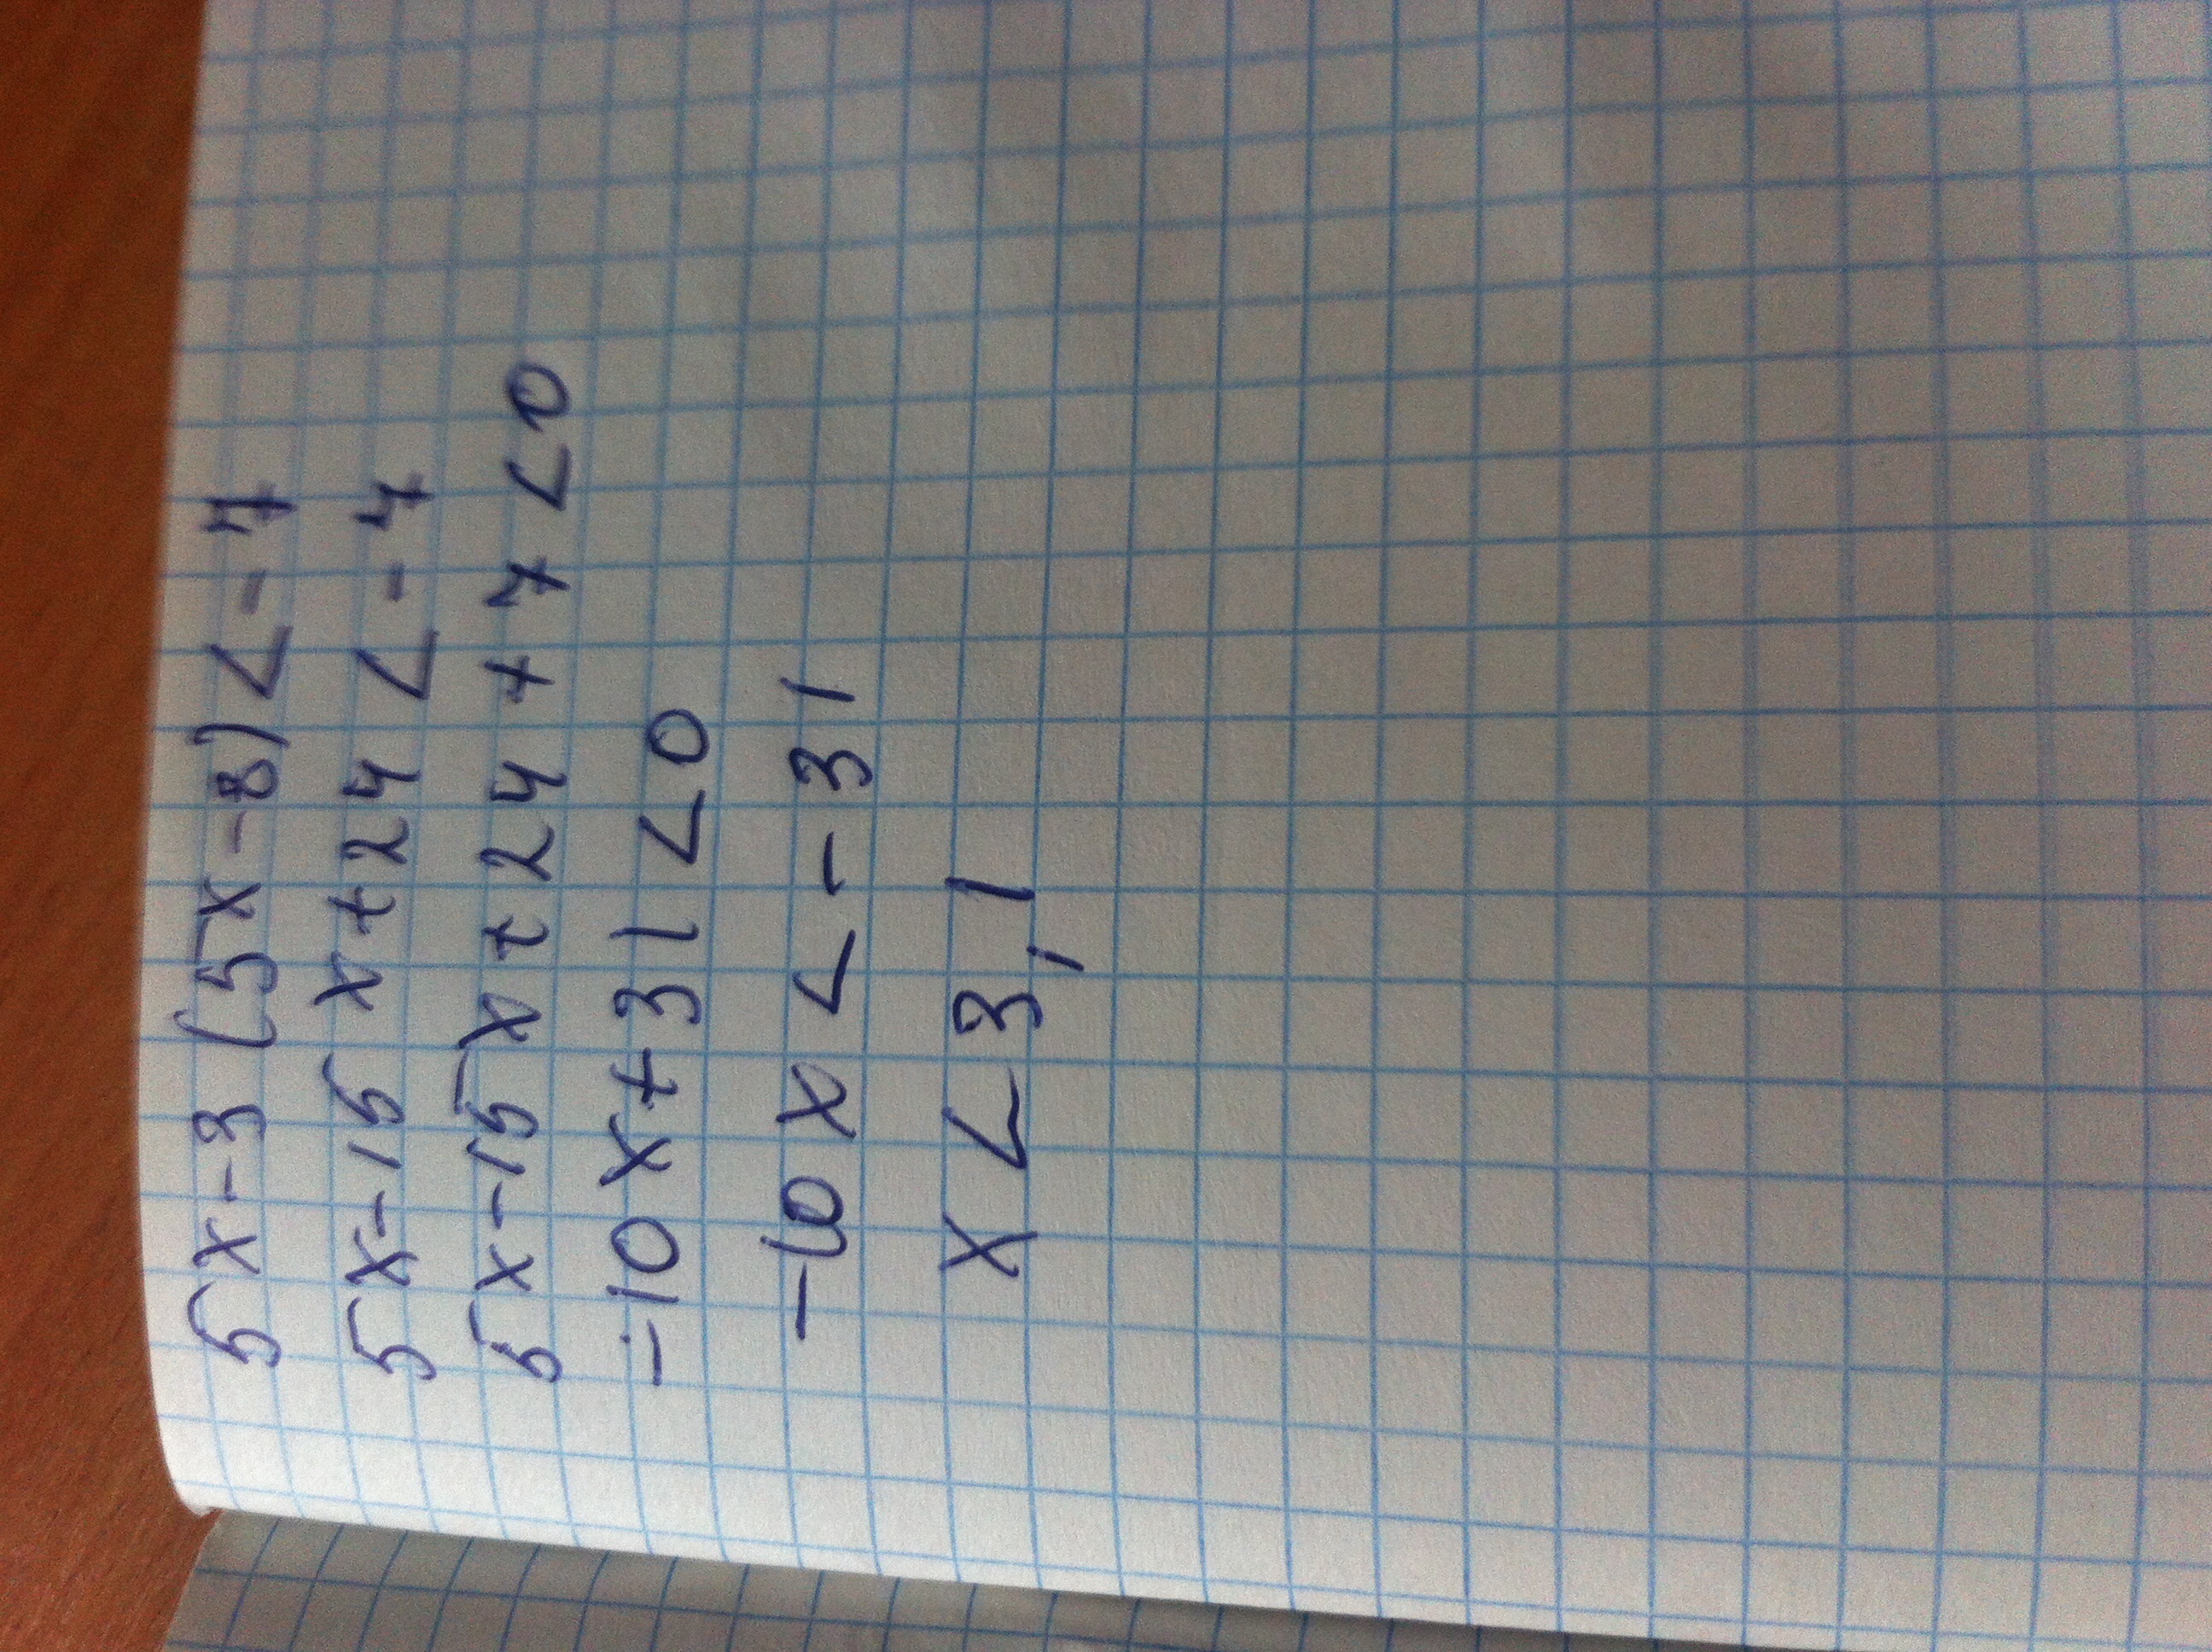 5x-3(5x-8)<-7
5x-15x+24<-7
5x-15x+24+7<0
-10x+31<0
-10x<-31
x<3,1